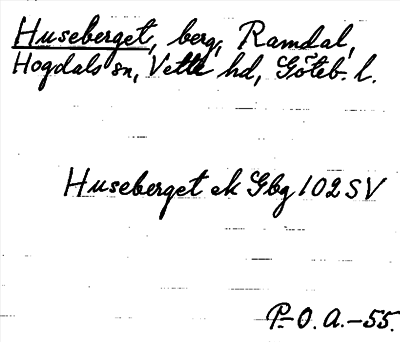 Huseberget, berg, Ramdal,
Hogdals sn, Vette hd, Göteb. l.
Huseberget ek Gbg 102 SV
P.-O. A. -55.